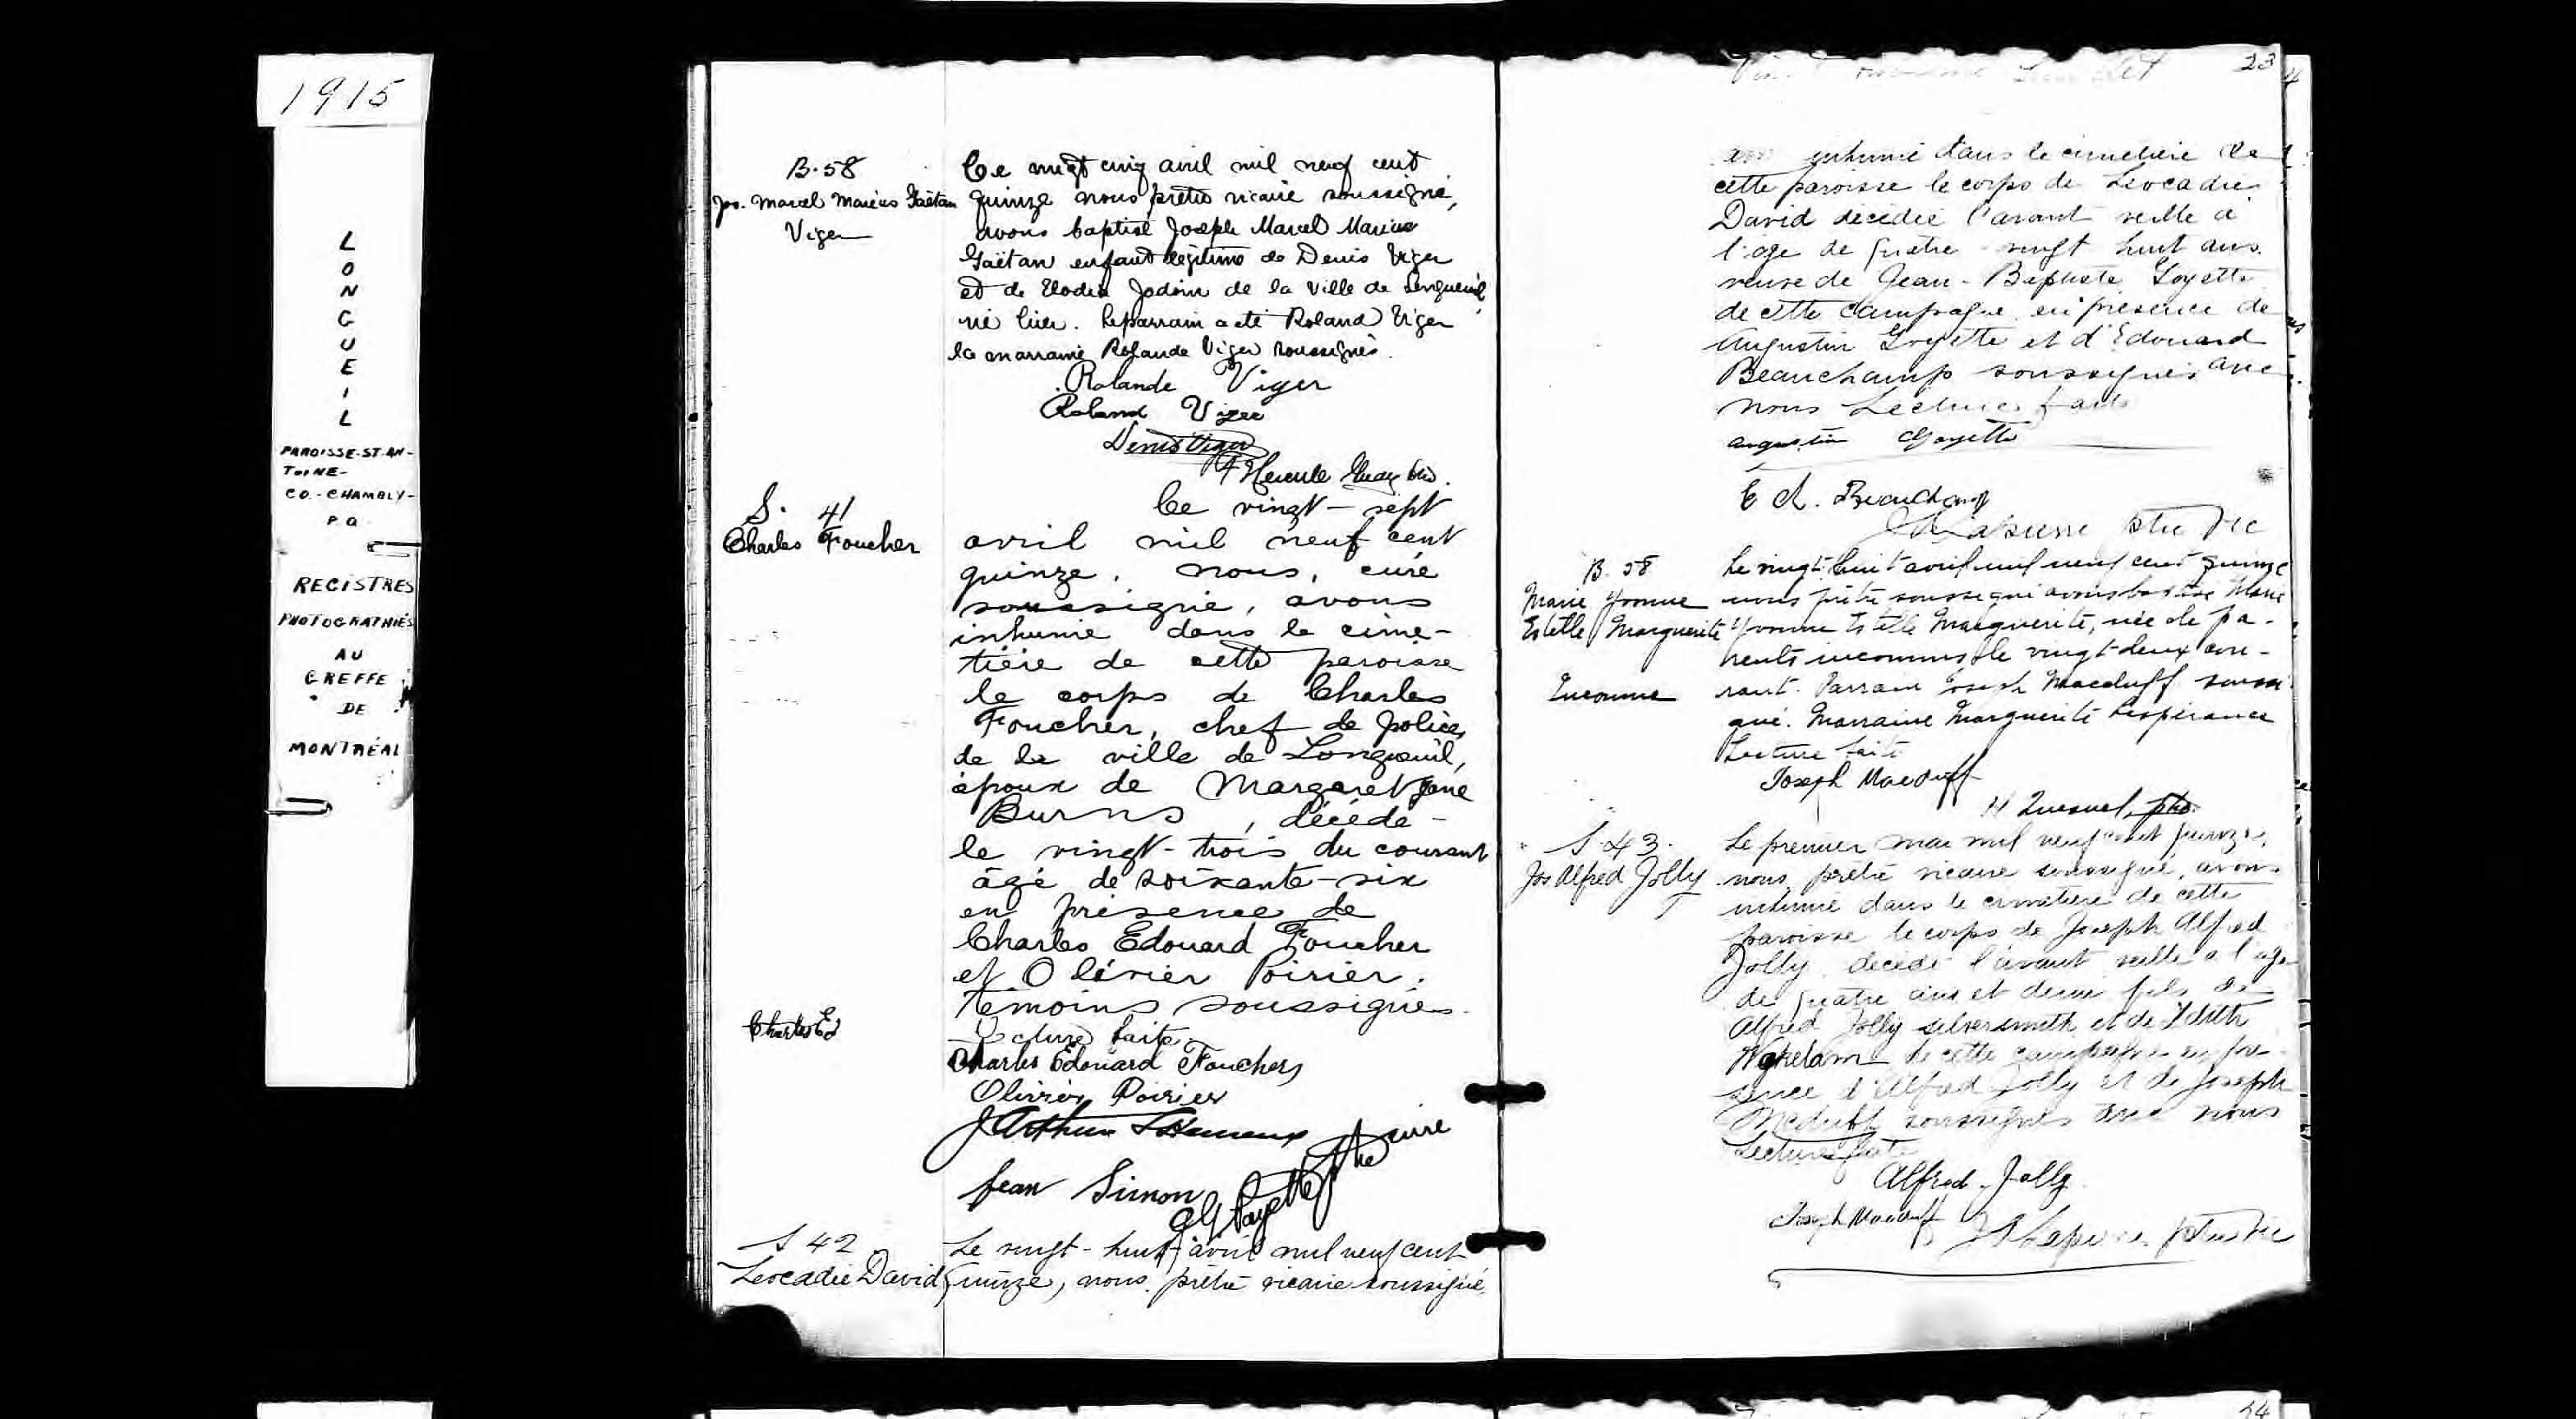 1915
L
O
N
G
U
E
I
L
PAROISSE-ST-AN-
TOINE-
CO.-CHAMBLY-
P.Q.
REGISTRES
PHOTOGRAPHIÉS
AU
GREFFE
DE
MONTRÉAL
B. 58
Jos. Marcel Marius Gaëtan
Viger
Ce vingt cinq avril mil neuf cent
quinze nous prêtre vicaire soussigné,
avons baptisé Joseph Marcel Marius
Gaëtan enfant légitime de Denis Viger
et de Elodia Jodoin de la Ville de Longueuil
né hier. Le parrain a été Roland Viger
la marraine Rolande Viger soussignés.
Rolande Viger
Roland Viger
Denis Viger
S. 41
Charles Foucher
Ce vingt-sept
avril mil neuf cent
quinze, nous, curé
soussigné, avons
inhumé dans le cime-
tière de cette paroisse
le corps de Charles
Foucher, chef de police,
de la ville de Longueuil,
époux de Margaret Jane
Burns, décédé
le vingt-trois du courant
âgé de soixante-six
en présence de
Charles Edouard Foucher
et Olivier Poirier,
témoins soussignés.
Charles Ed
Lecture faite
Charles Edouard Foucher
Olivier Poirier
J Arthur
Jean Simon
Payette Ptre curé
S 42
Léocadie David
Le vingt-huit avril mil neuf cent
quinze, nous, prêtre vicaire soussigné,
23
inhumé dans le cimetière de
cette paroisse le corps de Léocadie
David décédée l'avant veille à
l'âge de quatre-vingt huit ans.
veuve de Jean-Baptiste Goyette
de cette campagne, en présence de
Augustin Goyette et d'Edouard
Beauchamp soussignés avec
nous Lecture faite
Augustin Goyette
Ed. Beauchamp
ptre vic
B. 58
Marie Yvonne
Estelle Marguerite
Inconnue
Le vingt-huit avril mil neuf cent quinze
nous prêtre soussigné avons baptisé Marie
Yvonne Estelle Marguerite, née de pa-
rents inconnus, le vingt-deux cou-
rant. Parrain Joseph Macduff soussi-
gné. Marraine Marguerite Lespérance
Lecture faite
Joseph Macduff
H Quesnel, ptre
S. 43.
Jos Alfred Jolly
Le premier mai mil neuf cent quinze,
nous, prêtre vicaire soussigné, avons
inhumé dans le cimetière de cette
paroisse le corps de Joseph Alfred
Jolly, décédé l'avant veille à l'âge
de quatre ans et demi fils de
Alfred Jolly silversmith et de Edith
de cette campagne en pré-
sence d'Alfred Jolly et de Joseph
McDuff soussignés avec nous
Lecture faite
Alfred Jolly
Joseph Macduff
ptre vic
24